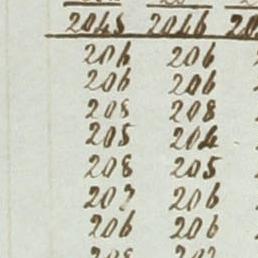 2045 2046 20
206 206
206 206
208 208
205 204
208 205
207 206
206 206